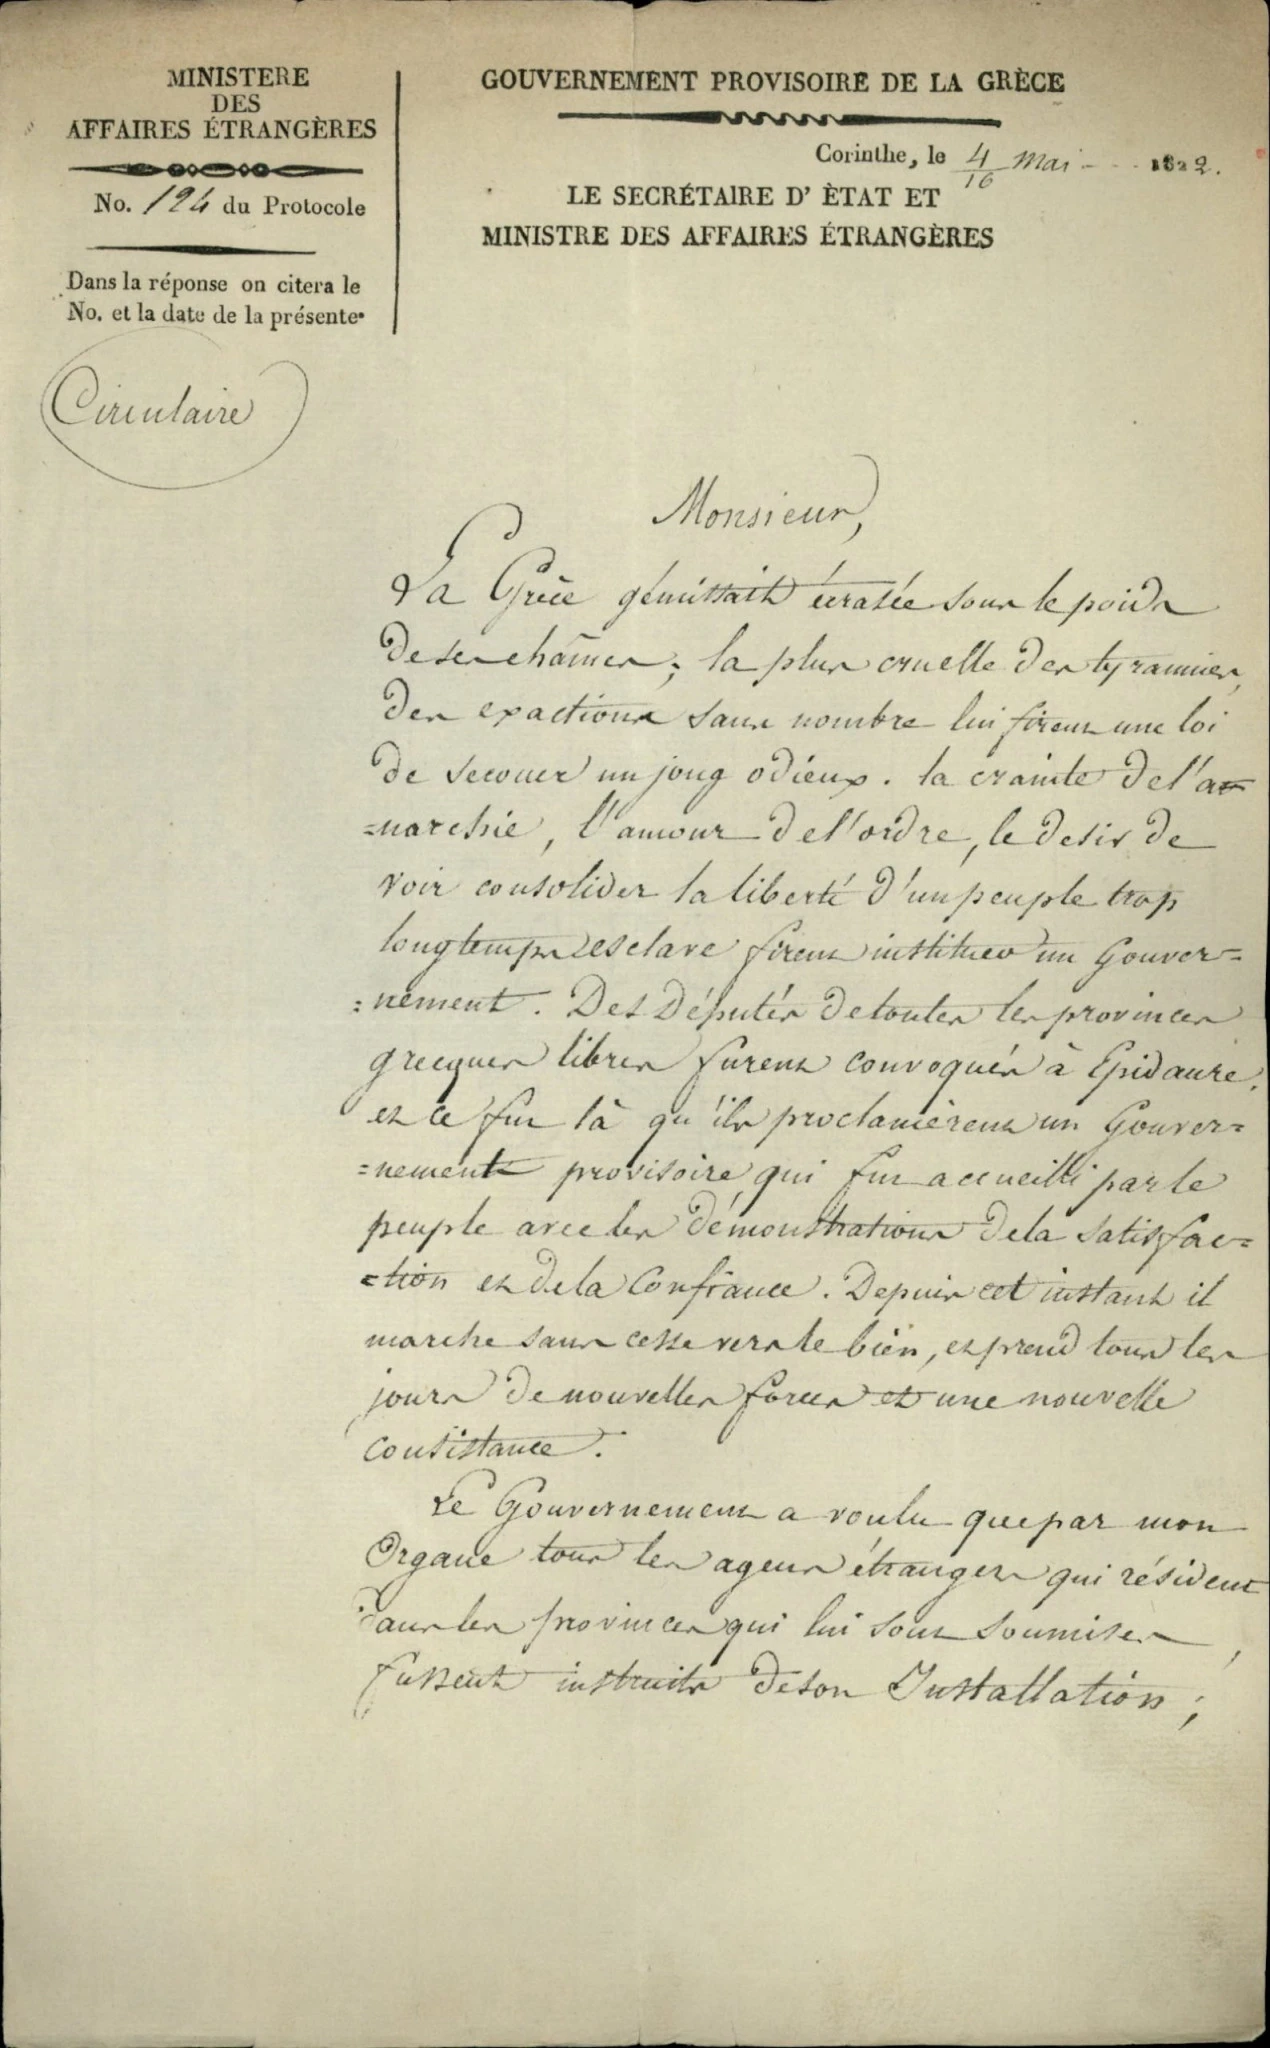 MINISTERE
DES
AFFAIRES ÉTRANGÈRES
No. 124 du Protocole
Dans la réponse on citera le
No. et la date de la présente.
Circulaire
GOUVERNEMENT PROVISOIRE DE LA GRÈCE
Corinthe, le 4/16 Mai 1822.
LE SECRÉTAIRE D' ÈTAT ET
MINISTRE DES AFFAIRES ÉTRANGÈRES
Monsieur,
La Grèce gémissait écrasée sous le poids
de ses chaînes; la plus cruelle des tyrannies,
des exactions sans nombre lui firent une loi
de secouer un joug odieux. la crainte de l'a=
=narchie, l'amour de l'ordre, le desir de
voir consolider la liberté d'un peuple trop
longtemps esclave firent instituer un Gouver=
=nement. Des Députés de toutes les provinces
grecques libres furent convoqués à Epidaure,
et ce fut là qu'ils proclamèrent un Gouver=
=nement provisoire qui fut accueilli par le
peuple avec les démonstrations de la satisfac=
=tion et de la Confiance. Depuis cet instant il
marche sans cesse vers le bien, et prend tous les
jours de nouvelles forces et une nouvelle
consistance.
Le Gouvernement a voulu que par mon
Organe tous les agens étrangers qui résident
dans les provinces qui lui sont soumises,
fussent instruits de son Installation;